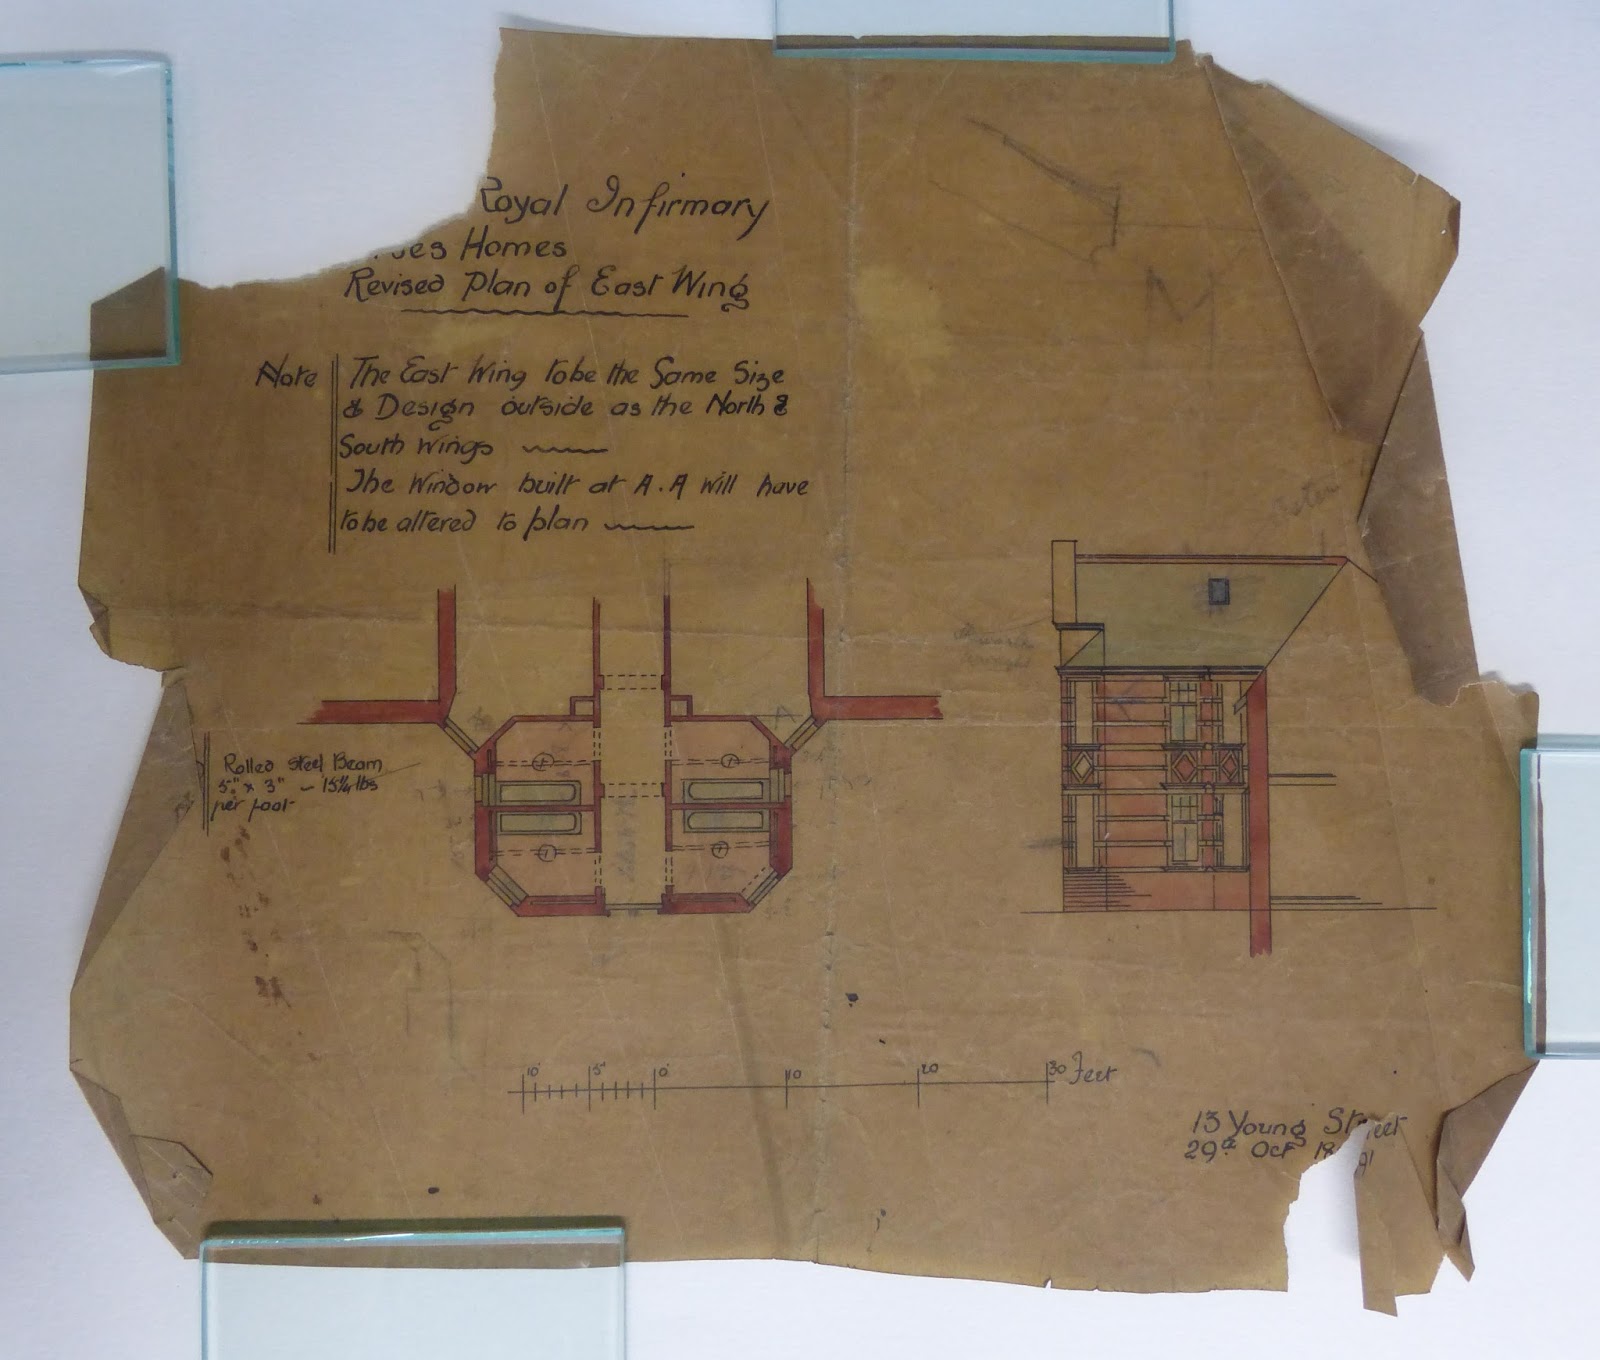 Royal Infirmary
ses Homes
Revised Plan of East Wing
Note
The East Wing to be the Same Size
& Design outside as the North &
South Wings
The Window built at A.A will have
to be altered to plan
A
Rolled Steel Beam
5" x 3" – 15¼ lbs
per foot
10 5 0 10 20 30 Feet
13 Young Street
29th Oct 1891